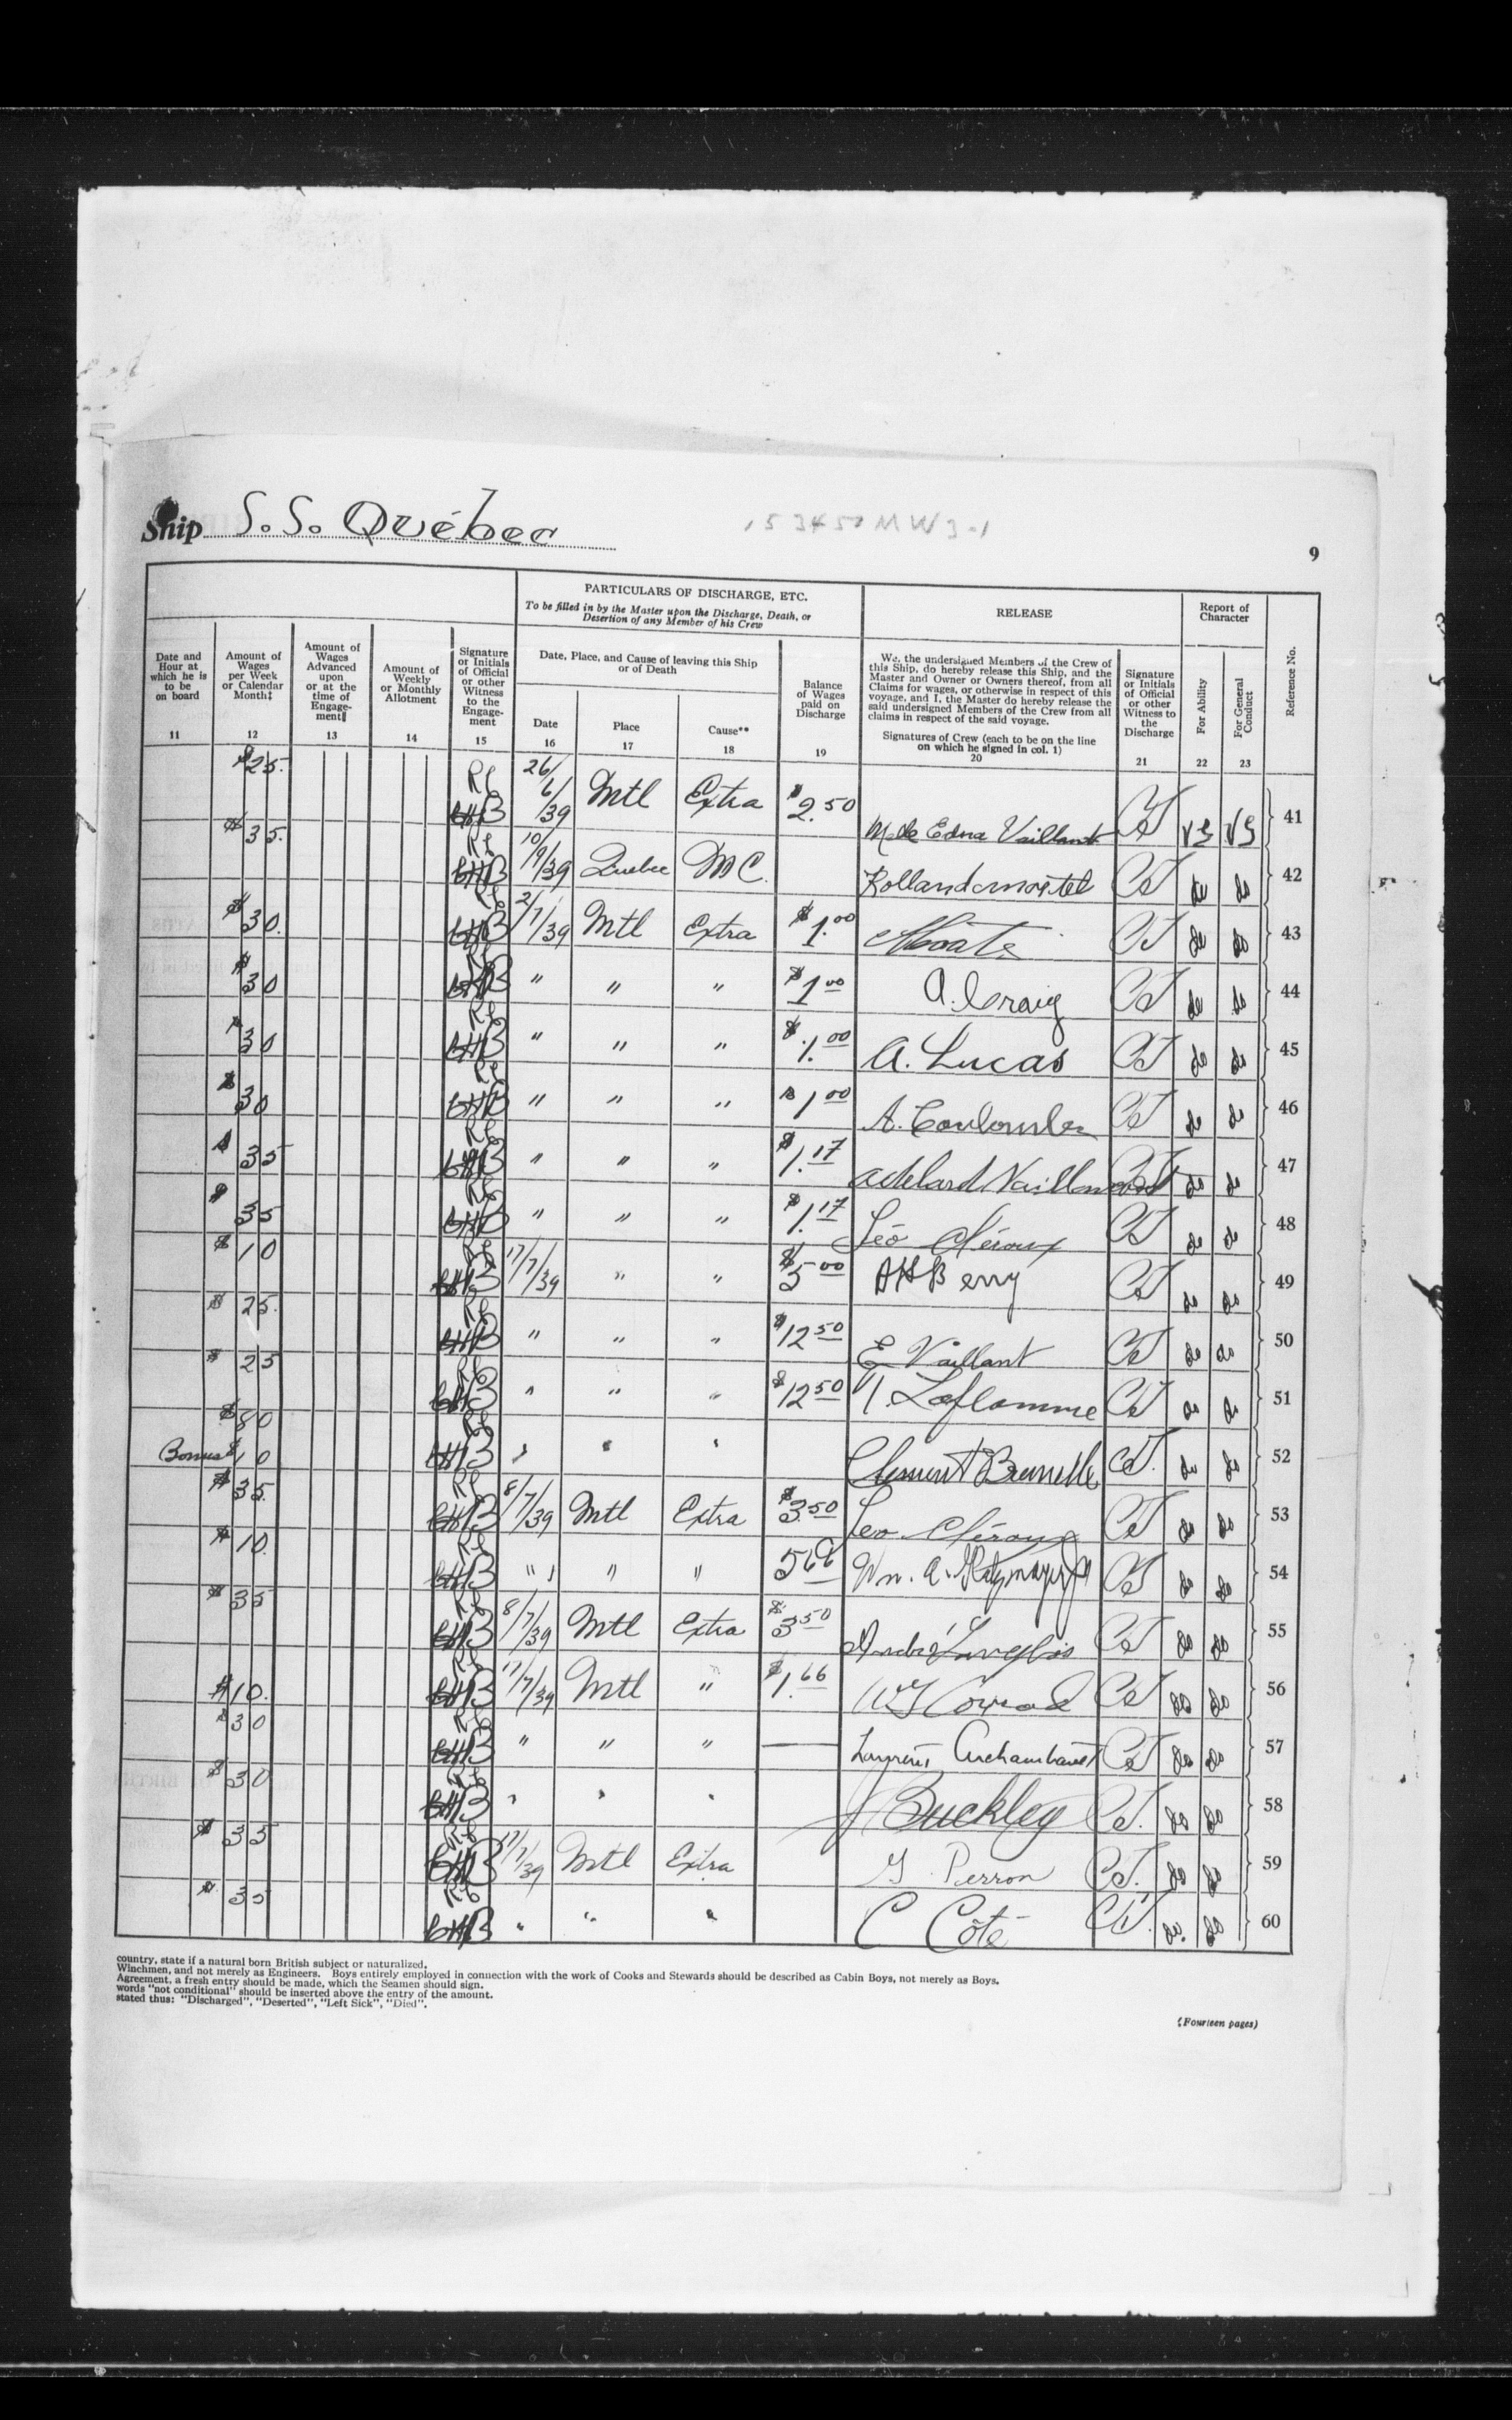 Ship S.S. Québec
9
PARTICULARS OF DISCHARGE, ETC.
To be filled in by the Master upon the Discharge, Death, or
Desertion of any Member of his Crew
RELEASE
Report of
Character
Reference No.
Date and
Hour at
which he is
to be
on board
11
Amount of
Wages
per Week
or Calendar
Month‡
12
Amount of
Wages
Advanced
upon
or at the
time of
Engage-
ment‖
13
Amount of
Weekly
or Monthly
Allotment
14
Signature
or Initials
of Official
or other
Witness
to the
Engage-
ment
15
Date, Place, and Cause of leaving this Ship
or of Death
Date
16
Place
17
Cause**
18
Balance
of Wages
paid on
Discharge
19
We, the undersigned Members of the Crew of
this Ship, do hereby release this Ship, and the
Master and Owner or Owners thereof, from all
Claims for wages, or otherwise in respect of this
voyage, and I, the Master do hereby release the
said undersigned Members of the Crew from all
claims in respect of the said voyage.
Signatures of Crew (each to be on the line
on which he signed in col. 1)
20
Signature
or Initials
of Official
or other
Witness to
the
Discharge
21
For Ability
22
For General
Conduct
23
$25. 26/6/39 Mtl Extra $2.50 Mde Edna Vaillant CT VG VG 41
$35. 10/9/39 Quebec MC. CT do do 42
$30. 2/7/39 Mtl Extra $1.00 CT do do 43
$30 " " " $1.00 A. Craig CT do do 44
$30 " " " $1.00 A. Lucas CT do do 45
$30 " " " $1.00 A. Coulombe CT do do 46
$35 " " " $1.17 Adelard Vaillancourt do do 47
$35 " " " $1.17 Léo Cléroux CT do do 48
$10 17/7/39 " " $5.00 AHBerry CT do do 49
$25. " " " $12.50 E Vaillant CT do do 50
$25 " " " $12.50 Laflamme CT do do 51
$80 Bonus $10 " " " Clement Brunelle CT. do do 52
$35. 8/7/39 Mtl Extra $3.50 Leo Cléroux CT do do 53
$10. " " " Wm. A. CT do do 54
$35 8/7/39 Mtl Extra $3.50 André Langlois CT do do 55
$10. 17/7/39 Mtl " $1.66 Conrad CT do do 56
$30 " " " — Archambault CT do do 57
$30 " " " J Buckley CT. do do 58
$35 17/7/39 Mtl Extra G Perron CT. do do 59
$35 " " " C Côté CT. do. do 60
country, state if a natural born British subject or naturalized.
Winchmen, and not merely as Engineers. Boys entirely employed in connection with the work of Cooks and Stewards should be described as Cabin Boys, not merely as Boys.
Agreement, a fresh entry should be made, which the Seamen should sign.
words "not conditional" should be inserted above the entry of the amount.
stated thus: "Discharged", "Deserted", "Left Sick", "Died".
(Fourteen pages)